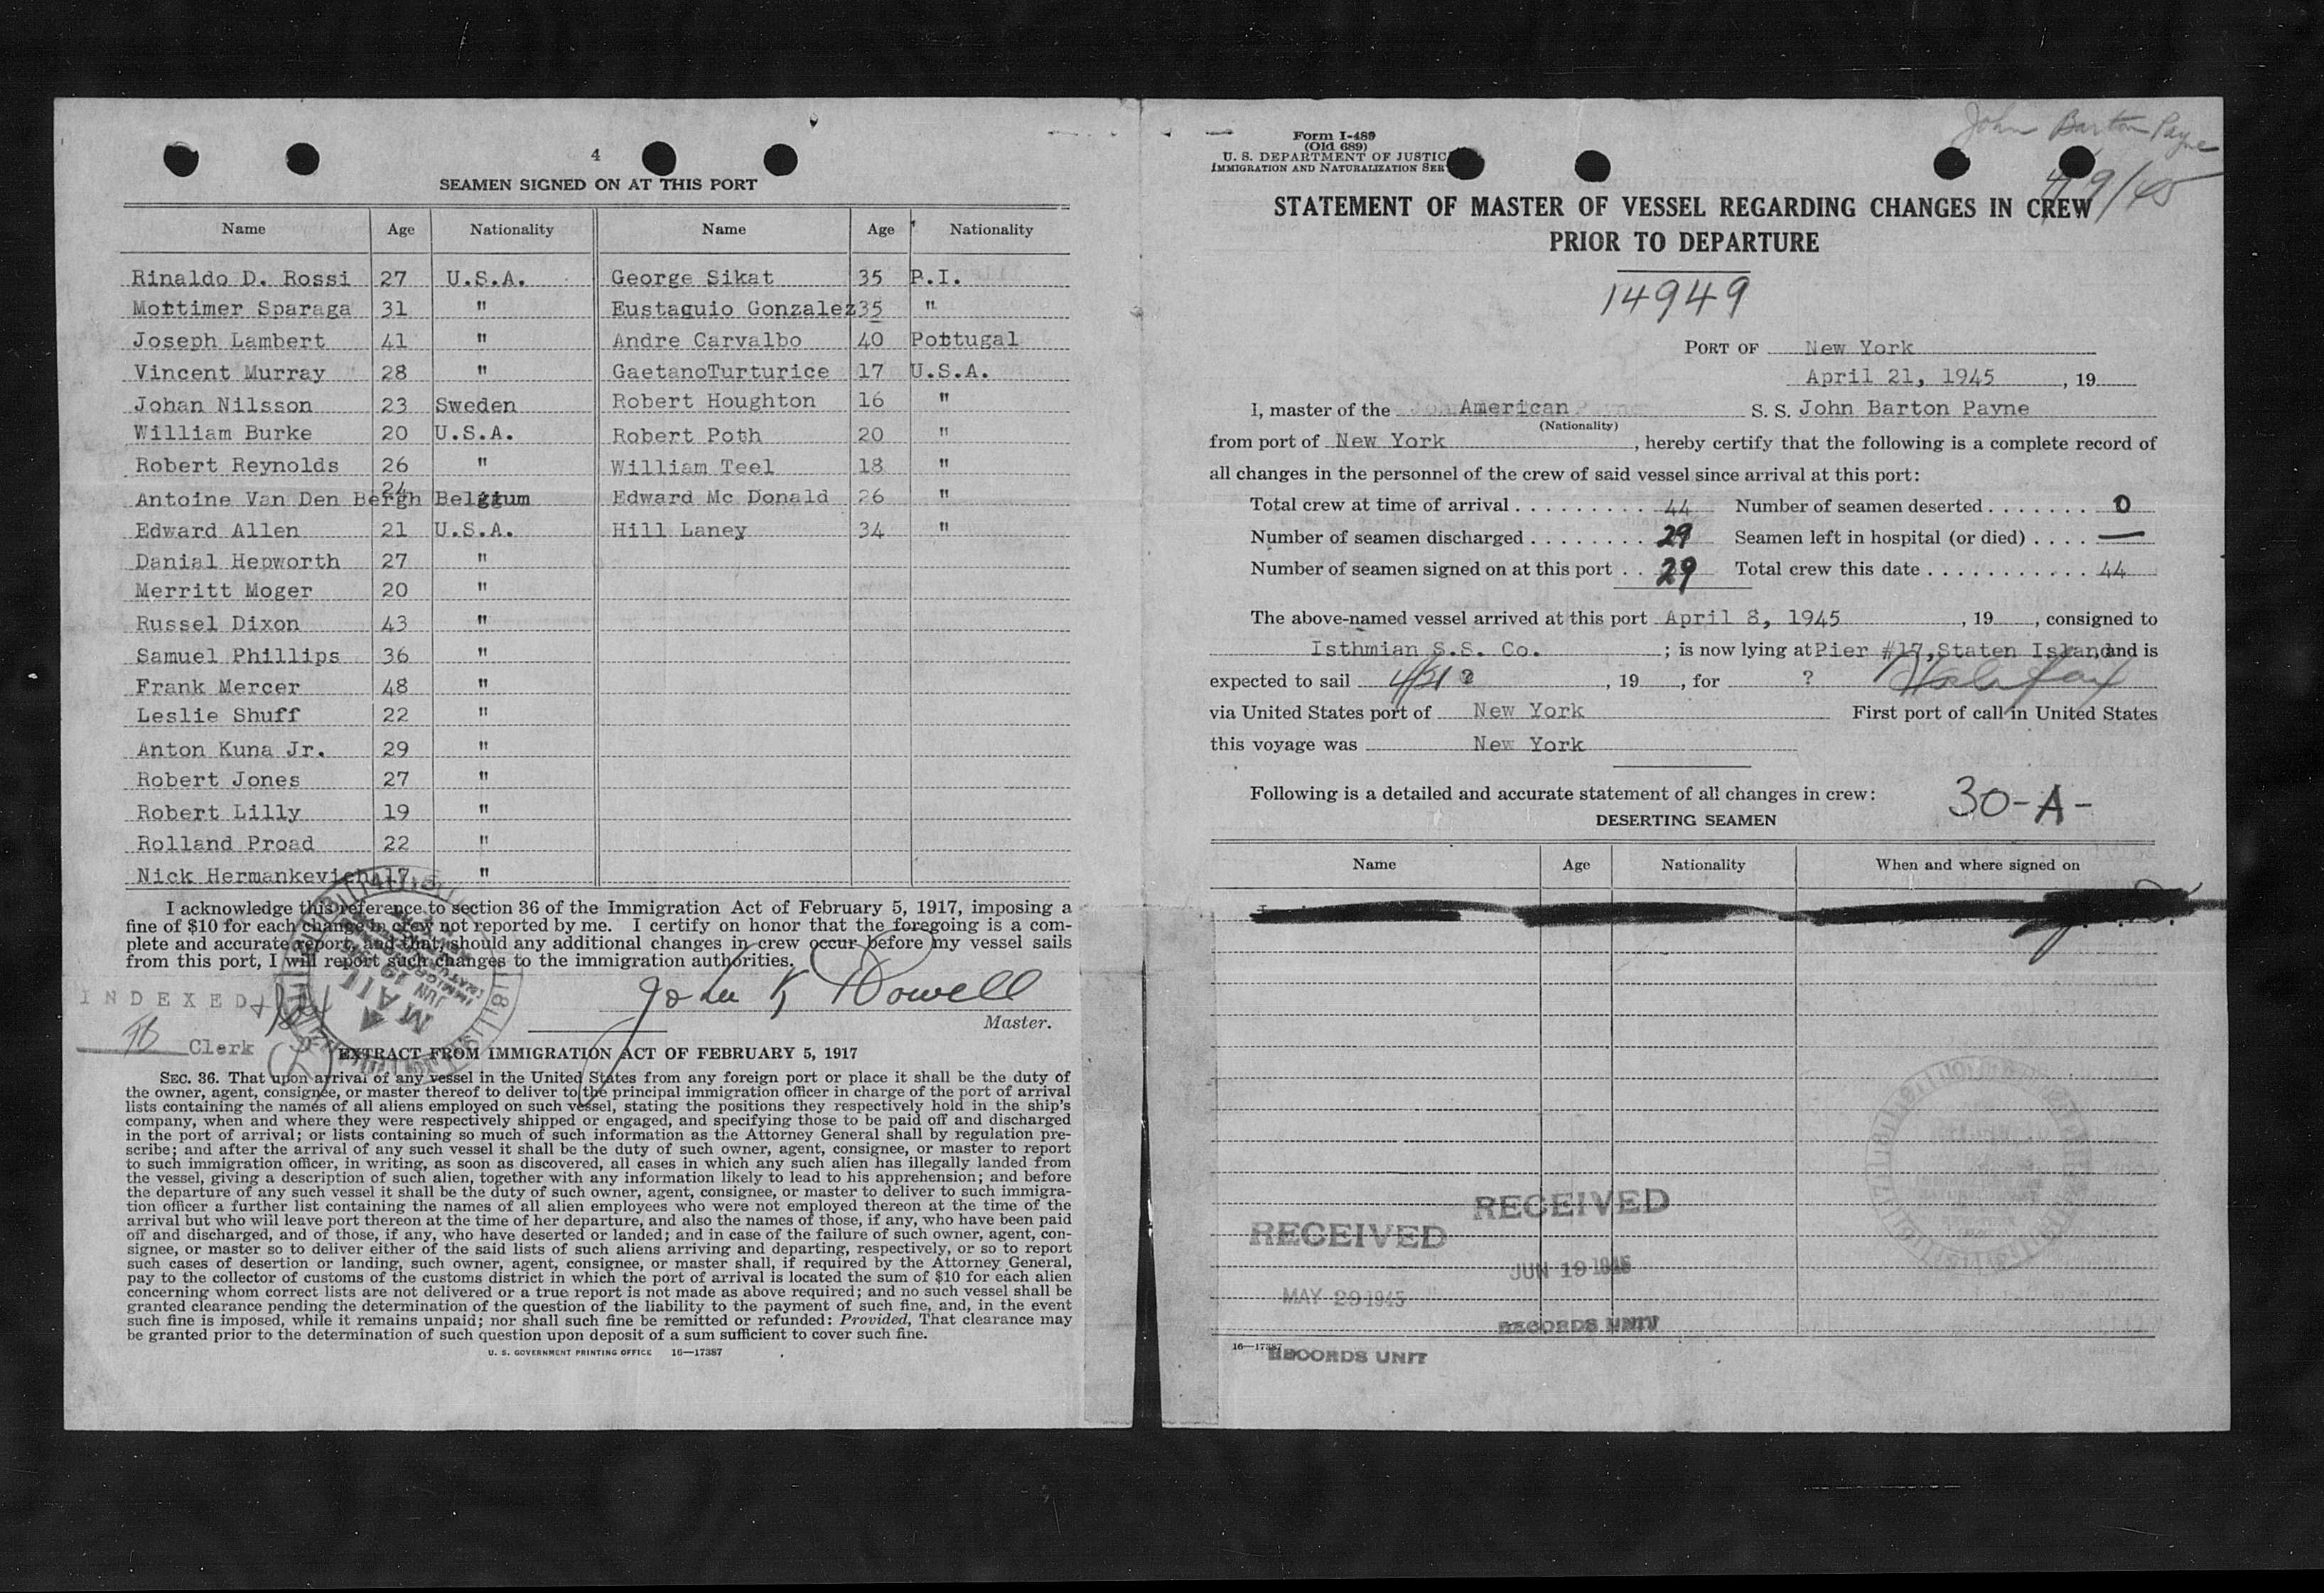 4
SEAMEN SIGNED ON AT THIS PORT
Name Age Nationality Name Age Nationality
Rinaldo D. Rossi 27 U.S.A. George Sikat 35 P.I.
Mottimer Sparaga 31 " Eustaquio Gonzalez 35 "
Joseph Lambert 41 " Andre Carvalbo 40 Pottugal
Vincent Murray 28 " GaetanoTurturice 17 U.S.A.
Johan Nilsson 23 Sweden Robert Houghton 16 "
William Burke 20 U.S.A. Robert Poth 20 "
Robert Reynolds 26 " William Teel 18 "
Antoine Van Den Bergh 24 Belgium Edward Mc Donald 26 "
Edward Allen 21 U.S.A. Hill Laney 34 "
Danial Hepworth 27 "
Merritt Moger 20 "
Russel Dixon 43 "
Samuel Phillips 36 "
Frank Mercer 48 "
Leslie Shuff 22 "
Anton Kuna Jr. 29 "
Robert Jones 27 "
Robert Lilly 19 "
Rolland Proad 22 "
Nick Hermankevich 17 "
I acknowledge this reference to section 36 of the Immigration Act of February 5, 1917, imposing a
fine of $10 for each change in crew not reported by me. I certify on honor that the foregoing is a com-
plete and accurate report, and that, should any additional changes in crew occur before my vessel sails
from this port, I will report such changes to the immigration authorities.
INDEXED
John K Powell
Master.
Clerk
MAIL
JUN 19
EXTRACT FROM IMMIGRATION ACT OF FEBRUARY 5, 1917
SEC. 36. That upon arrival of any vessel in the United States from any foreign port or place it shall be the duty of
the owner, agent, consignee, or master thereof to deliver to the principal immigration officer in charge of the port of arrival
lists containing the names of all aliens employed on such vessel, stating the positions they respectively hold in the ship's
company, when and where they were respectively shipped or engaged, and specifying those to be paid off and discharged
in the port of arrival; or lists containing so much of such information as the Attorney General shall by regulation pre-
scribe; and after the arrival of any such vessel it shall be the duty of such owner, agent, consignee, or master to report
to such immigration officer, in writing, as soon as discovered, all cases in which any such alien has illegally landed from
the vessel, giving a description of such alien, together with any information likely to lead to his apprehension; and before
the departure of any such vessel it shall be the duty of such owner, agent, consignee, or master to deliver to such immigra-
tion officer a further list containing the names of all alien employees who were not employed thereon at the time of the
arrival but who will leave port thereon at the time of her departure, and also the names of those, if any, who have been paid
off and discharged, and of those, if any, who have deserted or landed; and in case of the failure of such owner, agent, con-
signee, or master so to deliver either of the said lists of such aliens arriving and departing, respectively, or so to report
such cases of desertion or landing, such owner, agent, consignee, or master shall, if required by the Attorney General,
pay to the collector of customs of the customs district in which the port of arrival is located the sum of $10 for each alien
concerning whom correct lists are not delivered or a true report is not made as above required; and no such vessel shall be
granted clearance pending the determination of the question of the liability to the payment of such fine, and, in the event
such fine is imposed, while it remains unpaid; nor shall such fine be remitted or refunded: Provided, That clearance may
be granted prior to the determination of such question upon deposit of a sum sufficient to cover such fine.
U. S. GOVERNMENT PRINTING OFFICE 16—17387
Form I-489
(Old 689)
U. S. DEPARTMENT OF JUSTIC
IMMIGRATION AND NATURALIZATION SER
John Barton Payne
4/9/45
STATEMENT OF MASTER OF VESSEL REGARDING CHANGES IN CREW
PRIOR TO DEPARTURE
14949
PORT OF New York
April 21, 1945, 19
I, master of the American S. S. John Barton Payne
(Nationality)
from port of New York, hereby certify that the following is a complete record of
all changes in the personnel of the crew of said vessel since arrival at this port:
Total crew at time of arrival 44 Number of seamen deserted 0
Number of seamen discharged 29 Seamen left in hospital (or died) —
Number of seamen signed on at this port 29 Total crew this date 44
The above-named vessel arrived at this port April 8, 1945, 19, consigned to
Isthmian S.S. Co.; is now lying at Pier #17, Staten Island and is
expected to sail 4/21 ?, 19, for ? Halifax
via United States port of New York First port of call in United States
this voyage was New York
Following is a detailed and accurate statement of all changes in crew:
30-A-
DESERTING SEAMEN
Name Age Nationality When and where signed on
RECEIVED
MAY 29 1945
RECORDS UNIT
RECEIVED
JUN 19 1945
RECORDS UNIT
16—17387